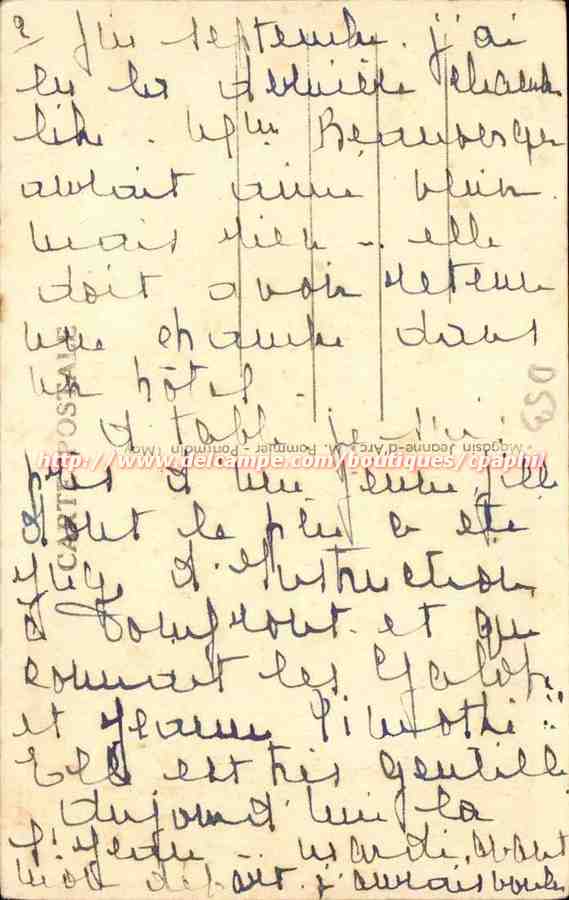 2/ fin septembre. j'ai
eu la dernière chambre
libre. Mme
aurait aimé venir
mais rien... elle
doit avoir retenu
une chambre dans
un hôtel.
A table je suis
CARTE POSTALE
Magasin Jeanne-d'Arc, A. Pommier - Pontmain (May
http://www.delcampe.com/boutiques/cpaphil
près d'une jeune fille
dont le père a été
juge d'Instruction
à Domfront et qui
connait les
et Jeanne
Elle est très gentille
aujourd'hui la
St Jean mardi, avant
mon départ. j'aurais voulu